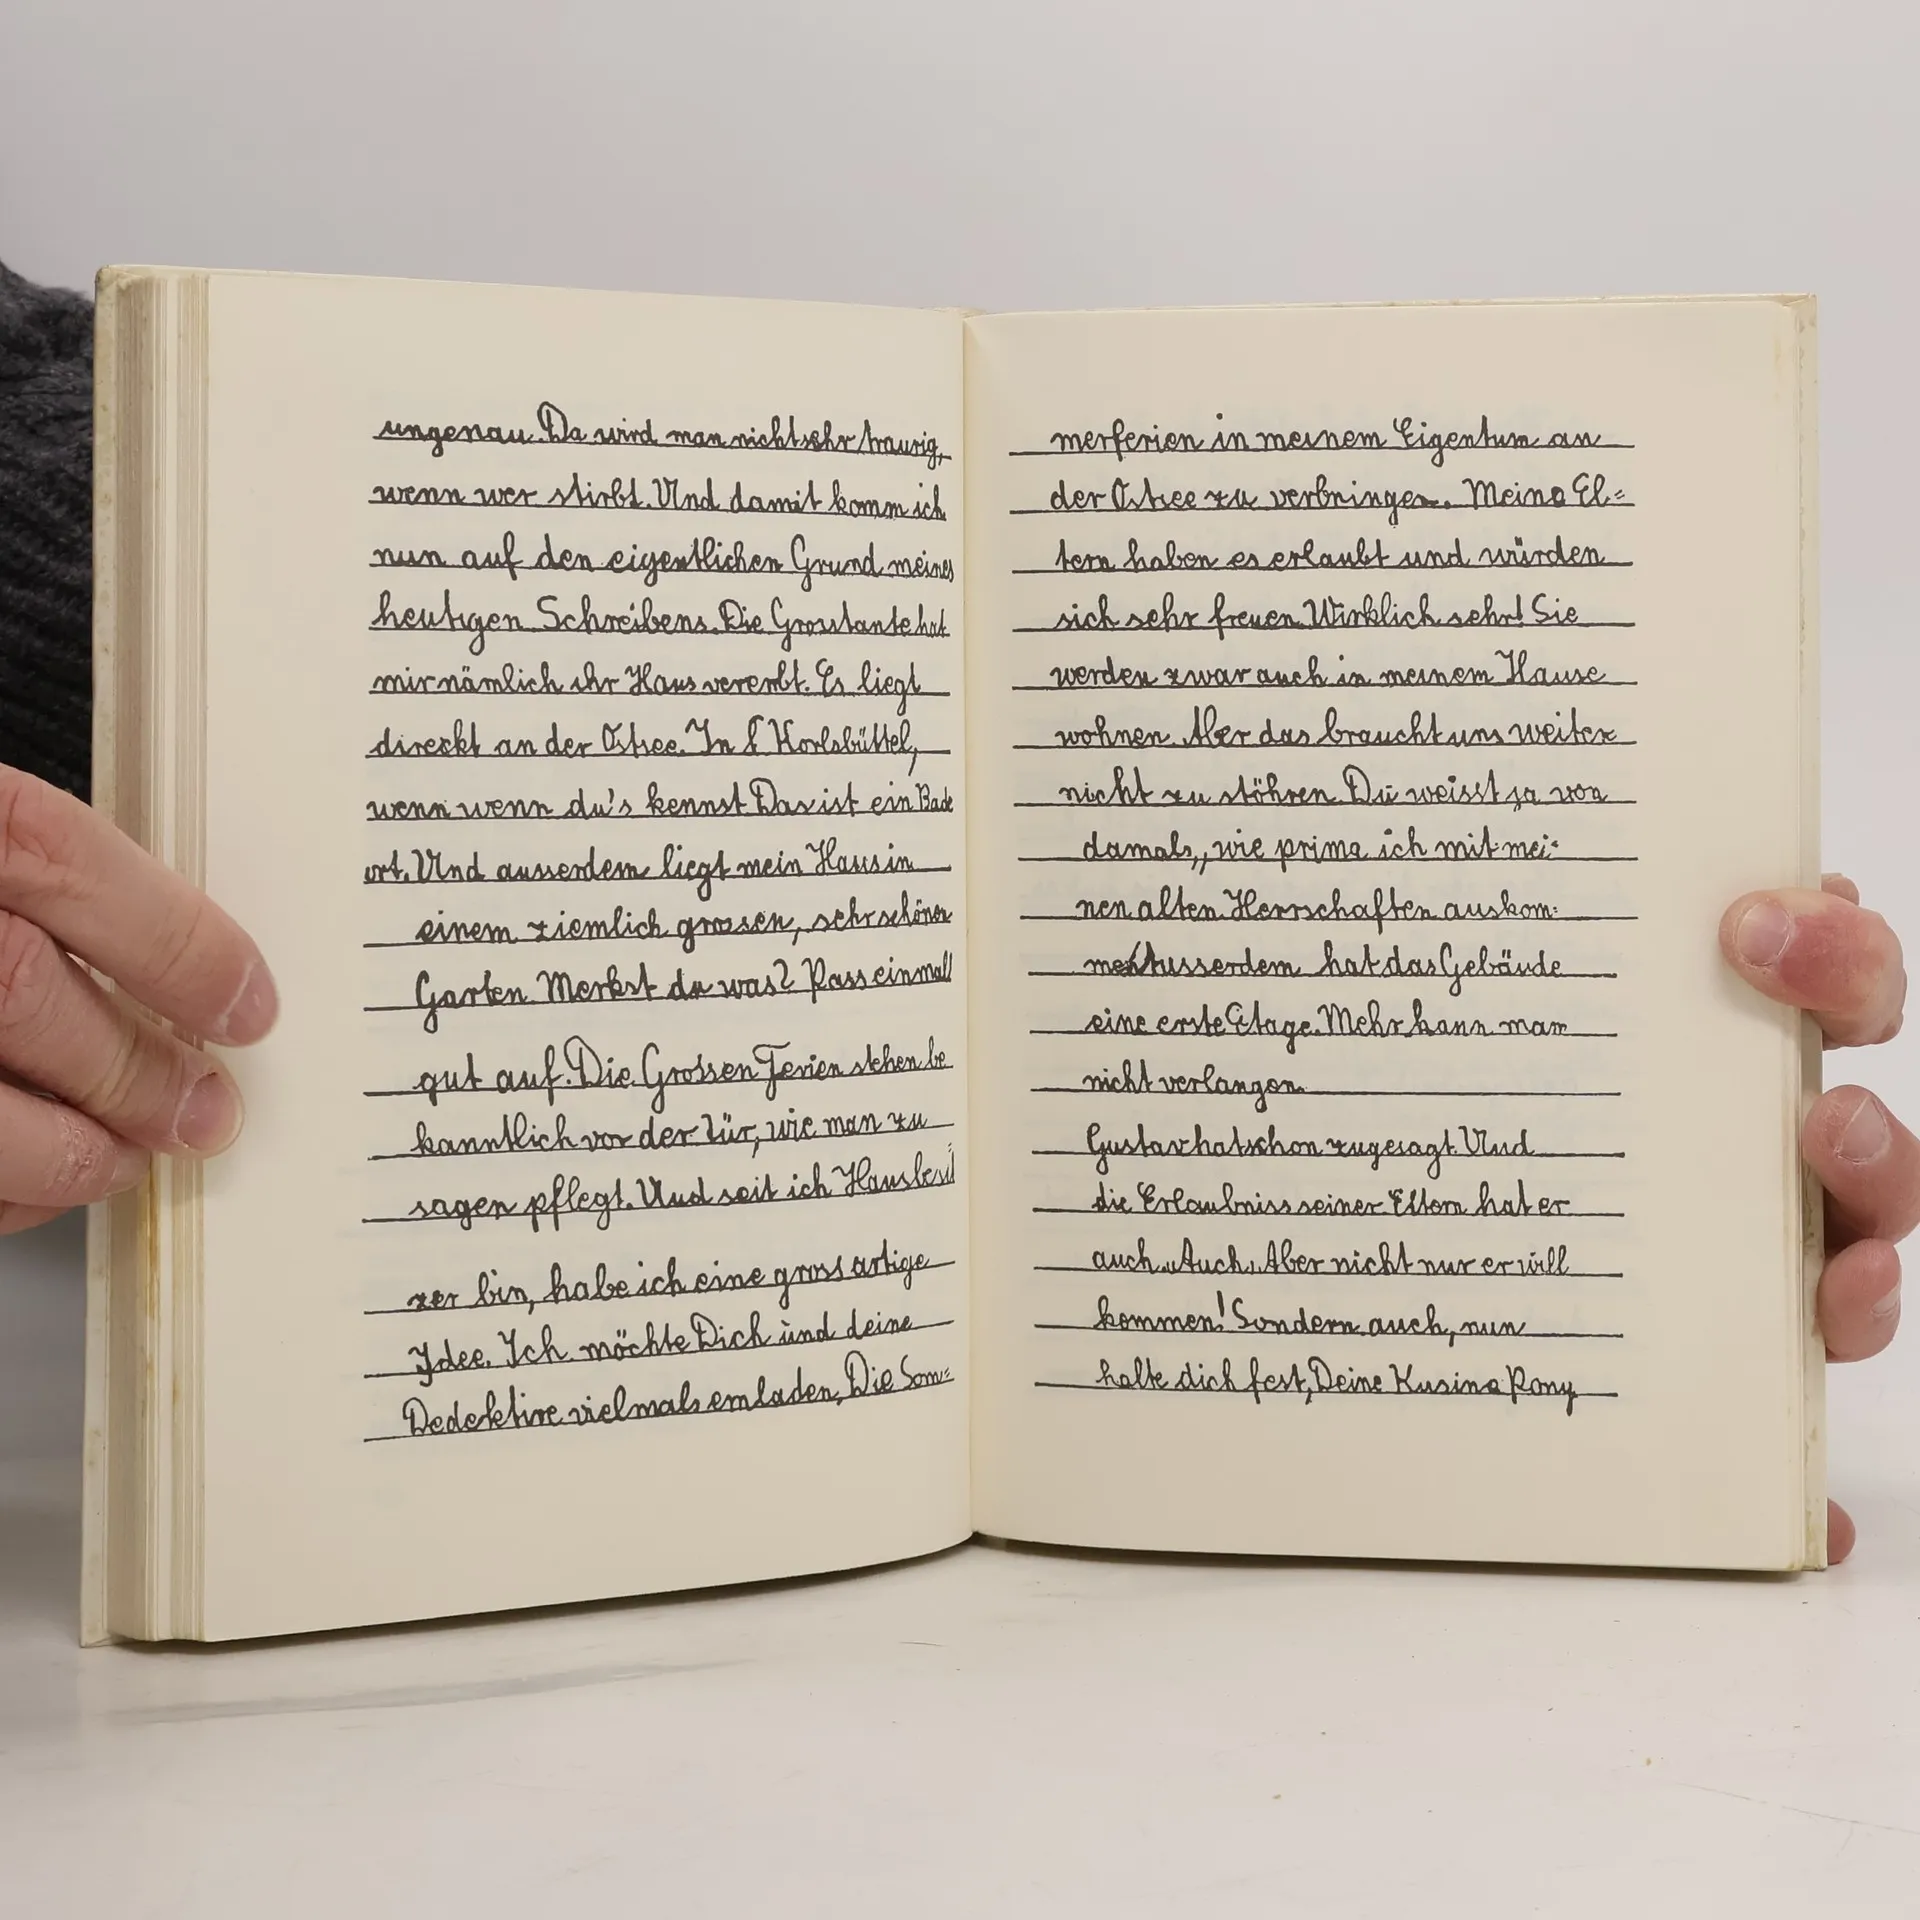 ungenau. Da wird man nicht sehr traurig,
wenn wer stirbt. Und damit komm ich
nun auf den eigentlichen Grund meines
heutigen Schreibens. Die Grosstante hat
mir nämlich ihr Haus vererbt. Es liegt
direckt an der Ostsee. In Korlsbüttel,
wenn wenn du's kennst. Das ist ein Bade
ort. Und ausserdem liegt mein Haus in
einem ziemlich grossen, sehr schönen
Garten. Merkst du was? Pass einmall
gut auf. Die Grossen Ferien stehen be
kanntlich vor der Tür, wie man zu
sagen pflegt. Und seit ich Hausbesit
zer bin, habe ich eine gross artige
Idee. Ich möchte Dich und deine
Dedektive vielmals einladen, Die Som=
merferien in meinem Eigentum an
der Ostsee zu verbringen. Meine El=
tern haben es erlaubt und würden
sich sehr freuen. Wirklich sehr! Sie
werden zwar auch in meinem Hause
wohnen. Aber das braucht uns weiter
nicht zu stöhren. Du weisst ja von
damals, wie prima ich mit mei=
nen alten Herrschaften auskom=
me. Ausserdem hat das Gebäude
eine erste Etage. Mehr kann man
nicht verlangen.
Gustav hat schon zugesagt. Und
die Erlaubniss seiner Eltern hat er
auch. „Auch". Aber nicht nur er will
kommen! Sondern auch, nun
halte dich fest, Deine Kusine Pony